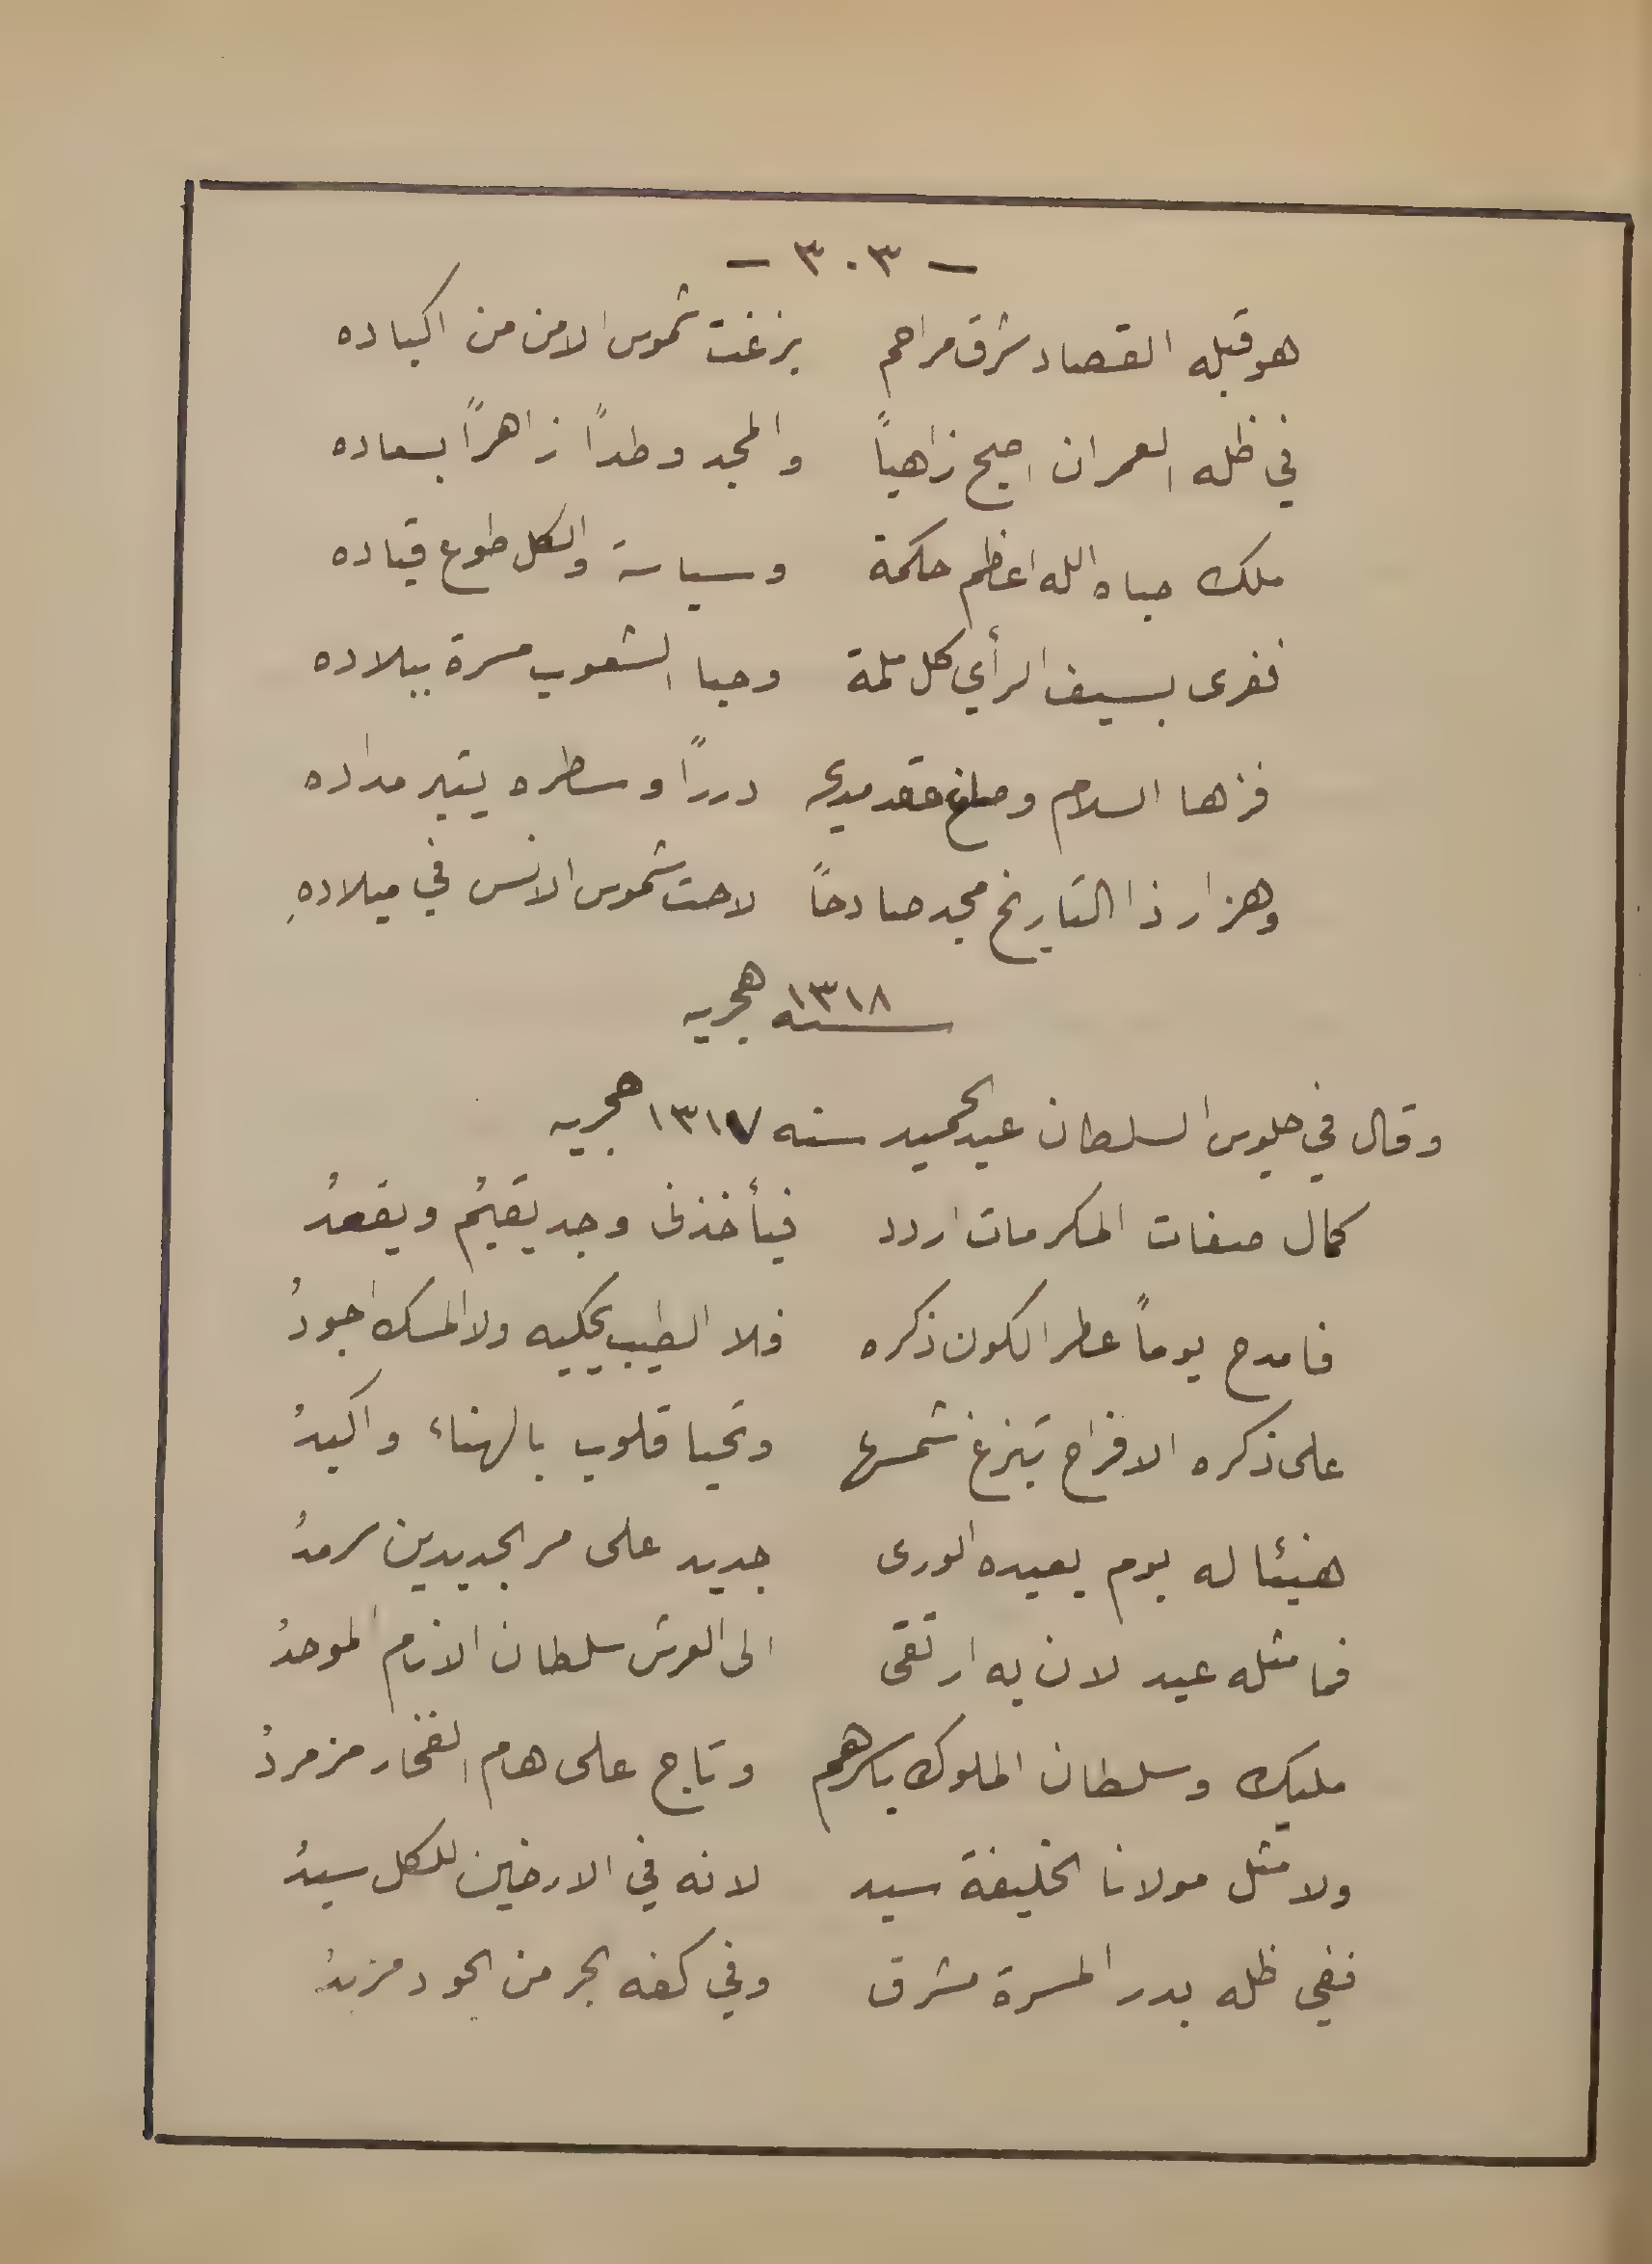 - ٣٠٣ -
هو قبله القصاد شرق مراحم بزغت شموس الامن من اكباده
في ظله العمران اصبح زاهياً والمجد وطداً زاهراً بسعاده
ملك حباه الله اعظم حكمة وسياسة والكل طوع قياده
ففرى بسيف الرأي كل ملمة وحبا الشعوب مسرة ببلاده
فزها السلام وصاغ عقد مديح درراً وسطره يتير مداده
وهزار ذا التاريخ مجد صادحاً لاحت شموس الانس في ميلادهِ
سنه ١٣١٨ هجريه
وقال في جلوس السلطان عبد الحميد سنه ١٣١٧ هجريه
كمال صفات المكرمات اردد فيأخذني وجد يقيمُ ويقعدُ
فامدح يوماً عطر الكون ذكره فلا الطيب يحكيه ولا المسك اجودُ
على ذكره الافراح تبزغ شمسها وتحيا قلوب بالهناء واكبدُ
هنيئا له يوم يعيده الورى جديد على مر الجديدين سرمدُ
فما مثله عيد لان به ارتقى الى العرش سلطان الانام الموحدُ
مليك وسلطان الملوك باسرهم وتاج على هام الفخار مزمردُ
ولا مثل مولانا الخليفة سيد لانه في الارضين للكل سيدُ
ففي ظله بدر المسرة مشرق وفي كفه بحر من الجود مزبدُ